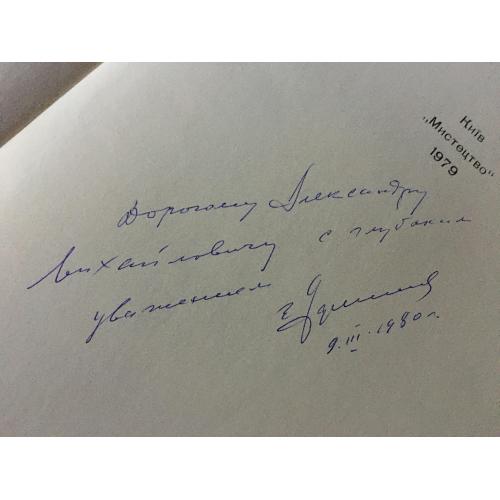 Київ
„Мистецтво“
1979
Дорогому Александру
Михайловичу с глубоким
уважением
9.III.1980г.